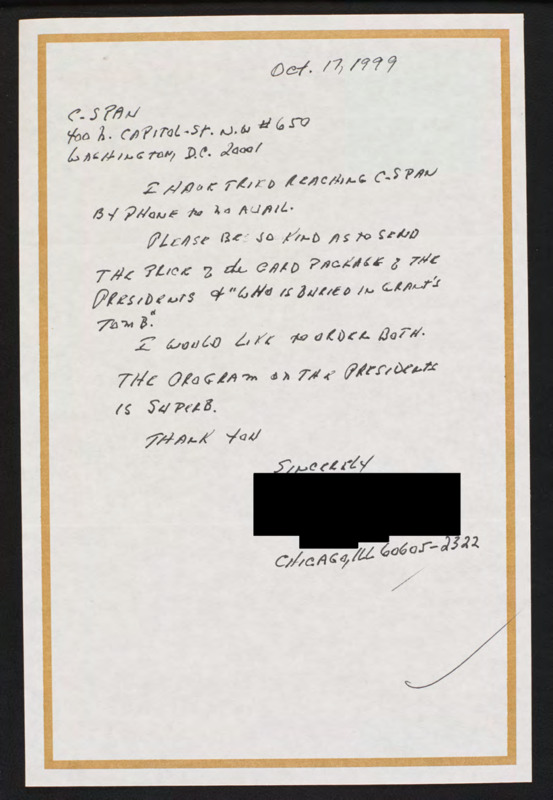 Oct. 17, 1999
C-SPAN
400 N. CAPITOL-ST. N.W #650
WASHINGTON, D.C. 20001
I HAVE TRIED REACHING C-SPAN
BY PHONE to no AVAIL.
PLEASE BE SO KIND AS to SEND
THE PRICE of the CARD PACKAGE of THE
PRESIDENTS & "WHO IS BURIED IN GRANT'S
TOMB."
I WOULD LIKE to ORDER BOTH.
THE PROGRAM on THE PRESIDENTS
IS SUPERB.
THANK YOU
SINCERELY
CHICAGO, ILL 60605-2322